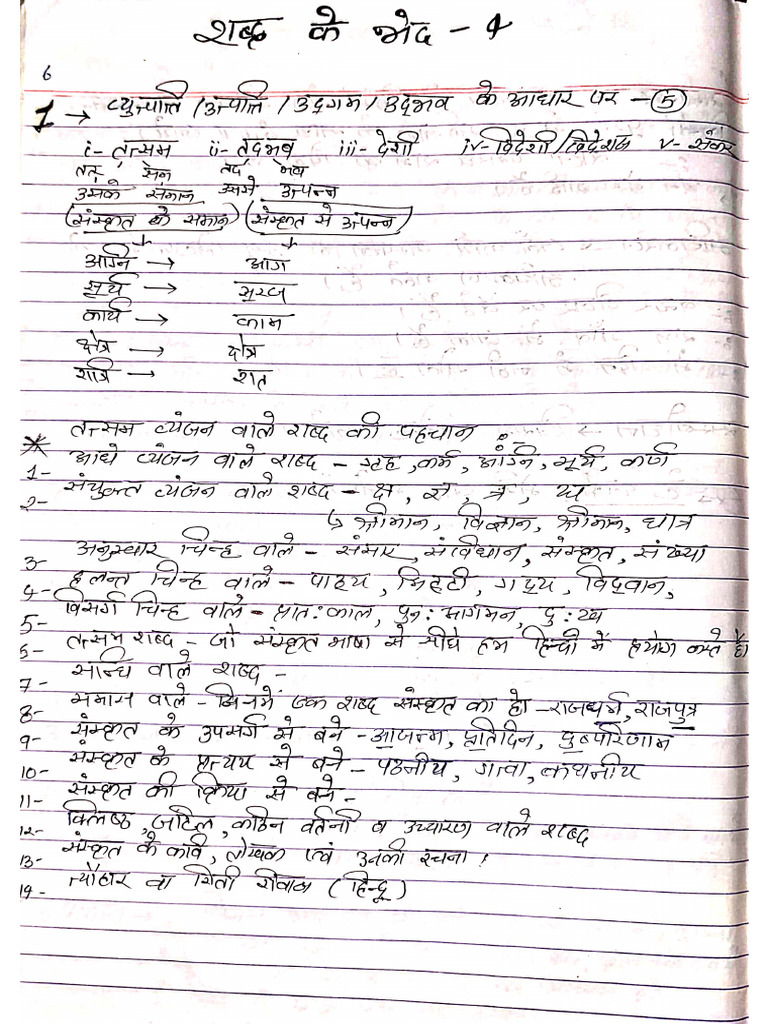 शब्द के भेद - 4
6
1 → व्युत्पत्ति / उत्पत्ति / उद्गम / उद्भव के आधार पर - 5
i- तत्सम ii- तद्भव iii- देशी iv- विदेशी/विदेशज v- संकर
तत् सम तद् भव
उसके समान उससे उत्पन्न
(संस्कृत के समान) (संस्कृत से उत्पन्न)
अग्नि → आग
सूर्य → सूरज
कार्य → काम
क्षेत्र → क्षेत्र
रात्रि → रात
* तत्सम व्यंजन वाले शब्द की पहचान :-
1- आधे व्यंजन वाले शब्द - , कर्म, अग्नि, सूर्य, कर्ण
2- संयुक्त व्यंजन वाले शब्द - क्ष, ज्ञ, त्र,
↳ श्रीमान, विज्ञान, श्रीमान, छात्र
3- अनुस्वार चिन्ह वाले - संसार, संविधान, संस्कृत, संख्या
4- हलन्त चिन्ह वाले - पाठ्य, मिट्टी, गद्य, विद्वान,
5- विसर्ग चिन्ह वाले - प्रात:काल, पुन: आगमन, दु:ख
6- तत्सम शब्द - जो संस्कृत भाषा से सीधे हम हिन्दी में प्रयोग करते है।
7- सन्धि वाले शब्द -
8- समास वाले - जिनमें एक शब्द संस्कृत का हो - राजधर्म, राजपुत्र
9- संस्कृत के उपसर्ग से बने - आजन्म, प्रतिदिन,
10- संस्कृत के प्रत्यय से बने - पठनीय, , कथनीय
11- संस्कृत की क्रिया से बने -
12- क्लिष्ठ, जटिल, कठिन वर्तनी व उच्चारण वाले शब्द
13- संस्कृत के कवि, लेखक एवं उनकी रचना।
14- त्यौहार वा रिती रिवाज (हिन्दू)